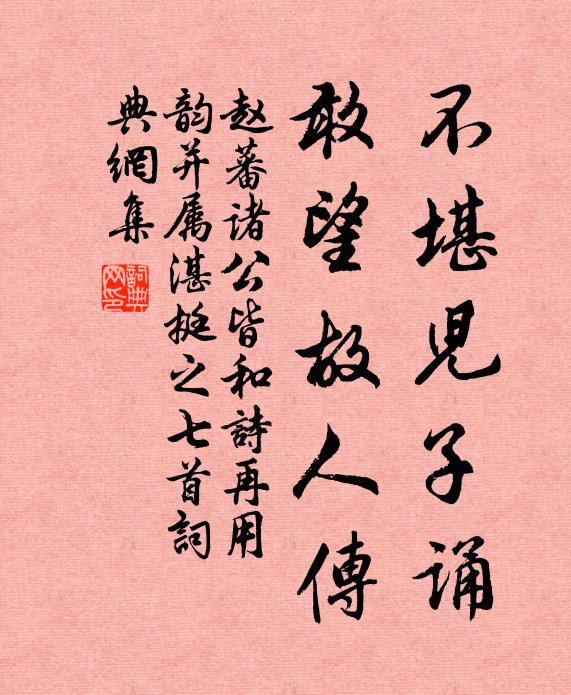 不堪児子诵
敢望故人傳
赵蕃诸公皆和詩再用
韵并属湛挺之七首詞
典網集
詞典网印